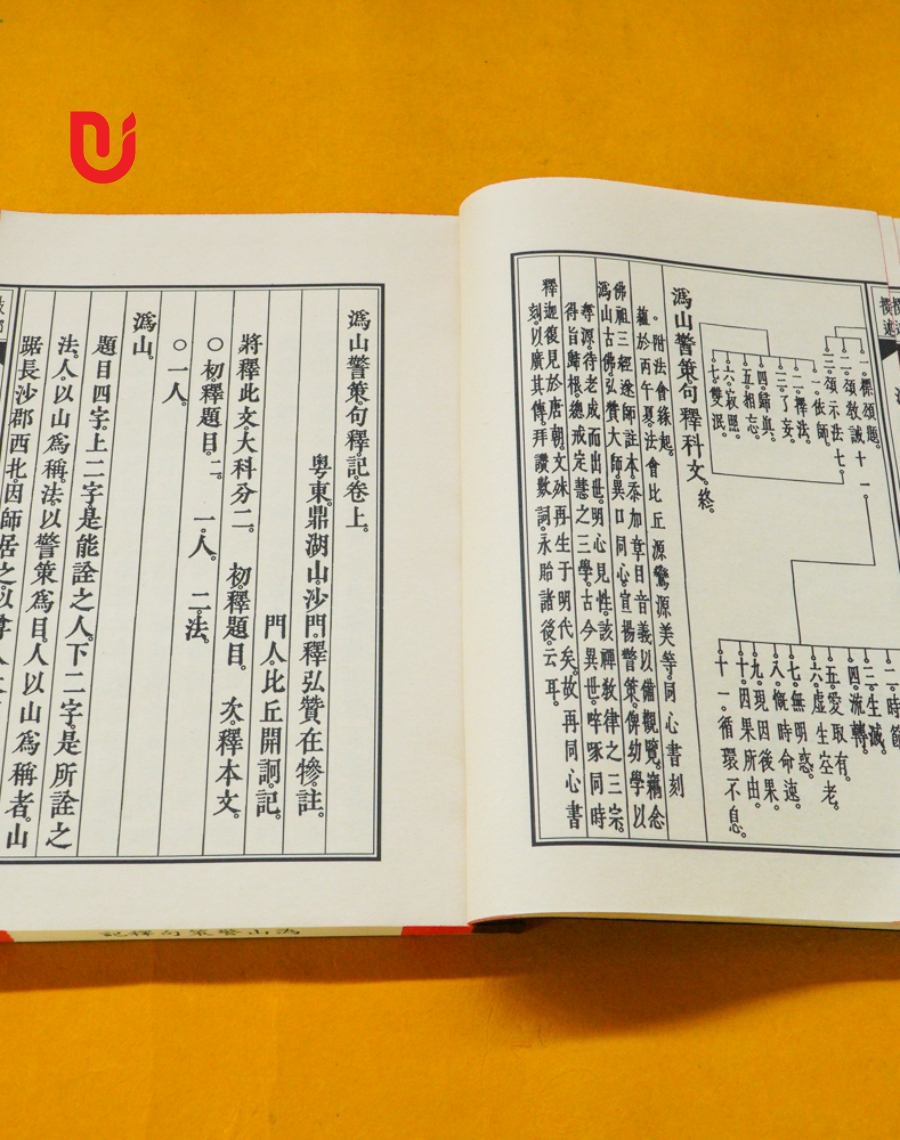 一。標頌題。
二。頌教誡十一。
三。頌示法七。
一。依師。
二。擇法。
三。了妄。
四。歸眞。
五。相忘。
六。寂照。
七。雙泯。
二。時節
三。生滅。
四。流轉。
五。愛取有。
六。虛生空老。
七。無明惑。
八。慨時命速。
九。現因後果。
十。因果所由。
十一。循環不息。
潙山警策句釋科文。終。
。附法會緣起。
蘊於丙午夏。法會比丘 源鶯源美等。同心書刻
佛祖三經遂師註本。忝加章目音義以備觀覽。竊念
潙山古佛。弘贊大師。異口同心。宣揚警策。俾幼學以
尋源。待老成而出世。明心見性。該禪教律之三宗。
得旨歸根。總戒定慧之三學。古今異世。啐啄同時
釋迦復見於唐朝。文殊再生于明代矣。故再同心書
刻。以廣其傳。拜讚數詞。永貽諸後云耳。
潙山警策句釋記。卷上。
粤東。鼎湖山。沙門。釋弘贊在犙。註。
門人。比丘開詗。記。
將釋此文。大科分二。 初釋題目。 次釋本文。
○初釋題目。二。 一。人。 二。法。
○一人。
潙山。
題目四字。上二字。是能詮之人。下二字。是所詮之
法。人以山爲稱。法以警策爲目。人以山爲稱者。山
踞長沙郡西北。因師居之。以尊人
潙山警策句釋記